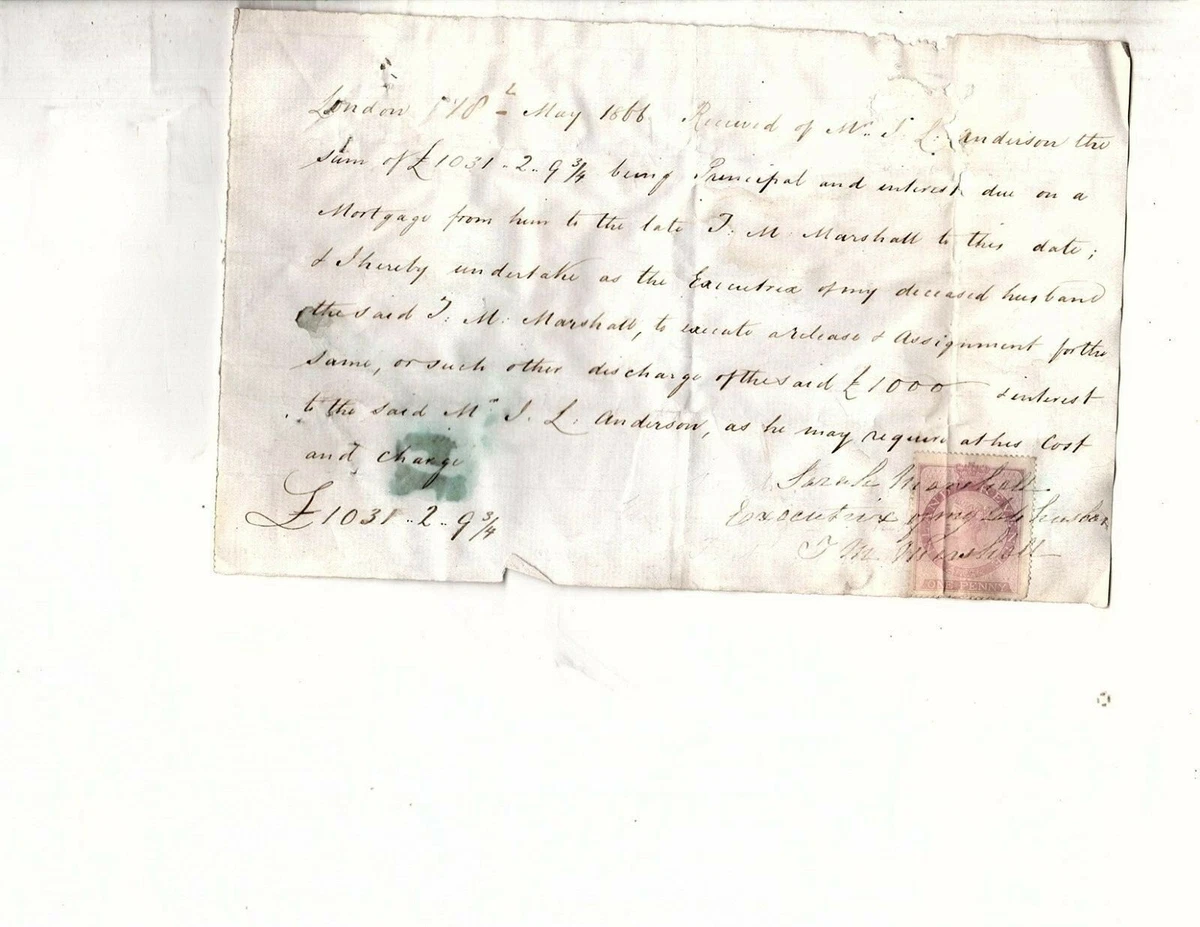 London 18th May 1866 Received of Mr. J. L. Anderson the
sum of £1031 .. 2 .. 9 3/4 being Principal and interest due on a
Mortgage from him to the late T: M: Marshall to this date;
& I hereby undertake as the Executrix of my deceased husband
the said T: M: Marshall, to execute a release & Assignment for the
same, or such other discharge of the said £1000 & interest
to the said Mr J. L. Anderson, as he may require at his Cost
and charge
Sarah Marshall
Executrix of my late husban
T M Marshall
£1031 .. 2 .. 9 3/4
ONE PENNY